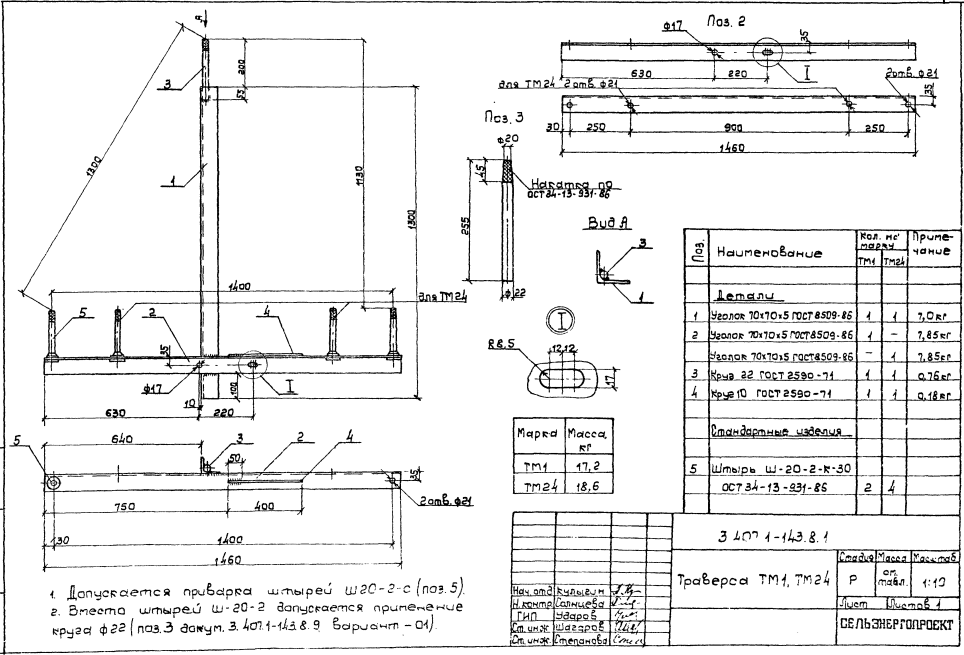 А
3
200
55
1
1300
1130
1300
1400
для ТМ24
5
2
4
35
Ф17
I
100
10
630
220
640
5
3
50
2
4
35
2отв. Ф21
750
400
30
1400
1460
Поз. 2
Ф17
35
630
220
I
для ТМ24 2отв. Ф21
2отв. Ф21
35
30
250
900
250
1460
Поз. 3
Ф20
45
255
Накатка по
ОСТ 34-13-931-86
Ф22
Вид А
3
1
I
R8.5
12
12
17
Марка Масса кг
ТМ1 17,2
ТМ24 18,6
Поз. Наименование Кол. на марку Приме-
ТМ1 ТМ24 чание
Детали
1 Уголок 70х70х5 ГОСТ 8509-86 1 1 7,0кг
2 Уголок 70х70х5 ГОСТ 8509-86 1 - 7,85кг
Уголок 70х70х5 ГОСТ 8509-86 - 1 7,85кг
3 Круг 22 ГОСТ 2590-71 1 1 0,76кг
4 Круг 10 ГОСТ 2590-71 1 1 0,18кг
Стандартные изделия
5 Штырь Ш-20-2-К-30
ОСТ 34-13-931-86 2 4
3.407.1-143.8.1
Траверса ТМ1, ТМ24
Стадия Масса Масштаб
Р см. табл. 1:10
Лист Листов 1
СЕЛЬЭНЕРГОПРОЕКТ
Нач. отд Кулыгин
Н. контр Солнцева
ГИП Ударов
Ст. инж Шагаров
Ст. инж. Степанова
1. Допускается приварка штырей Ш20-2-С (поз. 5).
2. Вместо штырей Ш-20-2 допускается применение
круга ф22 (поз. 3 докум. 3.407.1-143.8.9 вариант -01).